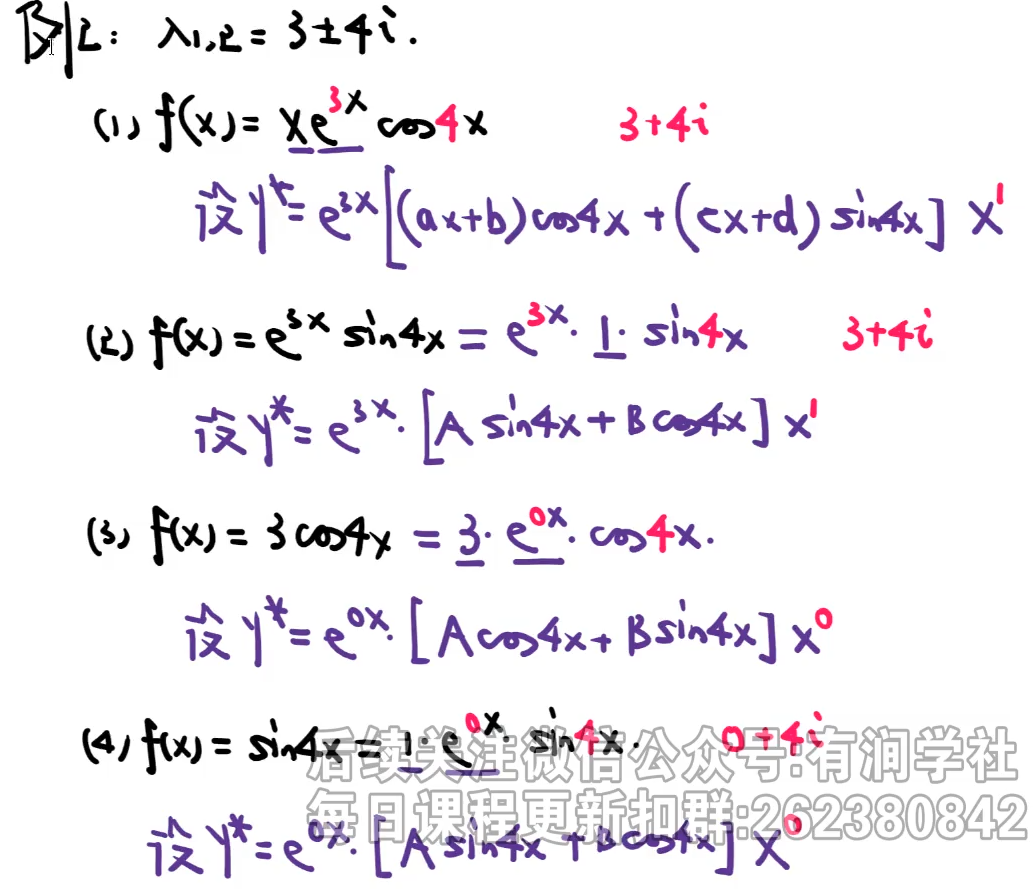 例2: λ1,2 = 3±4i.
(1) f(x) = xe^{3x} cos4x 3+4i
设 y* = e^{3x} [(ax+b)cos4x + (cx+d) sin4x] x^1
(2) f(x) = e^{3x} sin4x = e^{3x} · 1 · sin4x 3+4i
设 y* = e^{3x} · [A sin4x + B cos4x] x^1
(3) f(x) = 3 cos4x = 3 · e^{0x} · cos4x.
设 y* = e^{0x} · [A cos4x + B sin4x] x^0
(4) f(x) = sin4x = 1 · e^{0x} · sin4x. 0+4i
后续关注微信公众号:有润学社
每日课程更新扣群:262380842
设 y* = e^{0x} · [A sin4x + B cos4x] x^0